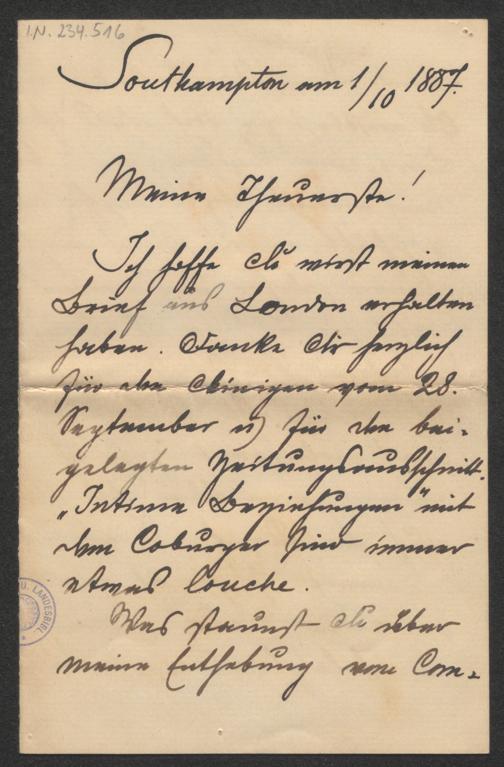 I.N. 234.516
Southampton am 1/10 1887.
Meine Theuerste!
Ich hoffe Du wirst meinen
Brief aus London erhalten
haben. Danke Dir herzlich
für den Deinigen vom 28.
September u) für den bei-
gelegten Zeitungsausschnitt.
„Intime Beziehungen" mit
dem Coburger sind immer
etwas louche.
Was staunst Du über
meine Enthebung vom Com-
U. LANDESBIBL